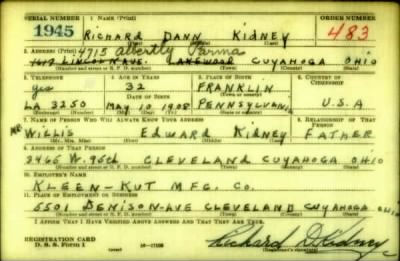 SERIAL NUMBER 1. NAME (Print) ORDER NUMBER
1945 RICHARD DANN KIDNEY 483
(First) (Middle) (Last)
2. ADDRESS (Print) 4715 Albertly Parma
LINCOLN AVE. LAKEWOOD CUYAHOGA OHIO
(Number and street or R. F. D. number) (Town) (County) (State)
3. TELEPHONE 4. AGE IN YEARS 5. PLACE OF BIRTH 6. COUNTRY OF CITIZENSHIP
yes 32 FRANKLIN
DATE OF BIRTH (Town or county)
LA 3250 MAY 10 1908 PENNSYLVANIA U.S.A
7. NAME OF PERSON WHO WILL ALWAYS KNOW YOUR ADDRESS 8. RELATIONSHIP OF THAT PERSON
MR WILLIS EDWARD KIDNEY FATHER
(Mr., Mrs., Miss) (First) (Middle) (Last)
9. ADDRESS OF THAT PERSON
3465 W. 95th CLEVELAND CUYAHOGA OHIO
(Number and street or R. F. D. number) (Town) (County) (State)
10. EMPLOYER'S NAME
KLEEN-KUT MFG. CO.
11. PLACE OF EMPLOYMENT OR BUSINESS
5501 DENISON-AVE CLEVELAND CUYAHOGA OHIO
(Number and street or R. F. D. number) (Town) (County) (State)
I AFFIRM THAT I HAVE VERIFIED ABOVE ANSWERS AND THAT THEY ARE TRUE.
REGISTRATION CARD
D. S. S. Form 1 Richard D. Kidney
(Registrant's signature)